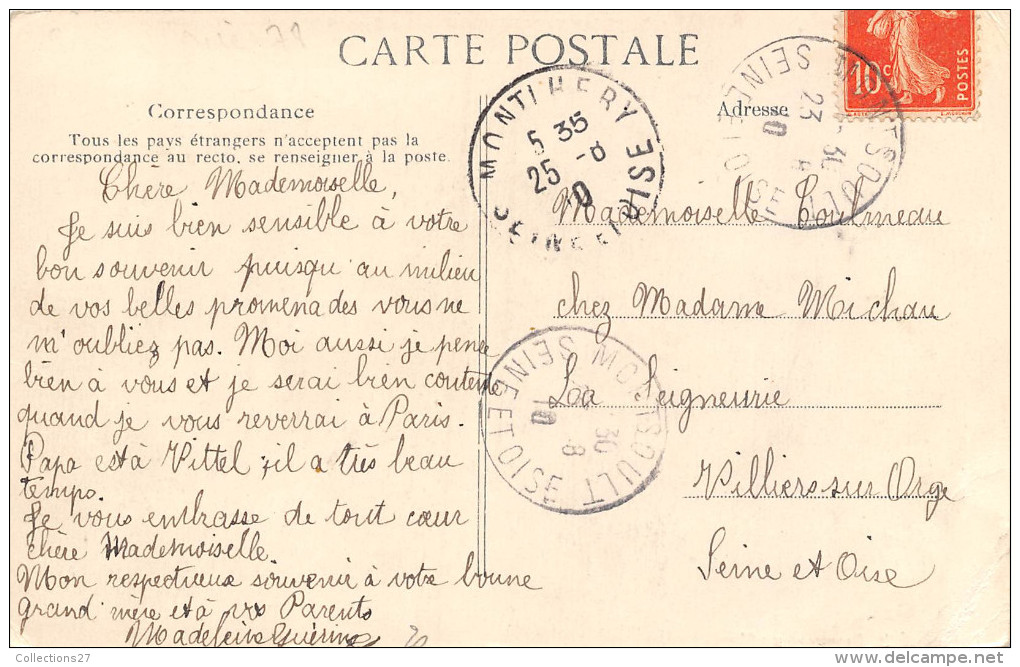 CARTE POSTALE
Correspondance
Tous les pays étrangers n'acceptent pas la
correspondance au recto, se renseigner à la poste.
Chère Mademoiselle,
Je suis bien sensible à votre
bon souvenir puisqu'au milieu
de vos belles promenades vous ne
m'oubliez pas. Moi aussi je pense
bien à vous et je serai bien contente
quand je vous reverrai à Paris.
Papa est à Vittel; il a très beau
temps.
Je vous embrasse de tout cœur
chère Mademoiselle.
Mon respectueux souvenir à votre bonne
grand'mère et à vos Parents
Madeleine Guérin
Adresse
10c POSTES
Mademoiselle
chez Madame Michau
La Seigneurie
Villiers sur Orge
Seine et Oise
MONTLHERY
5 35
25 -8
10
SEINE ET OISE
MONTSOULT
SEINE ET OISE
23
10
MONTSOULT
SEINE ET OISE
30
8
10
Collections27
delcampe.net